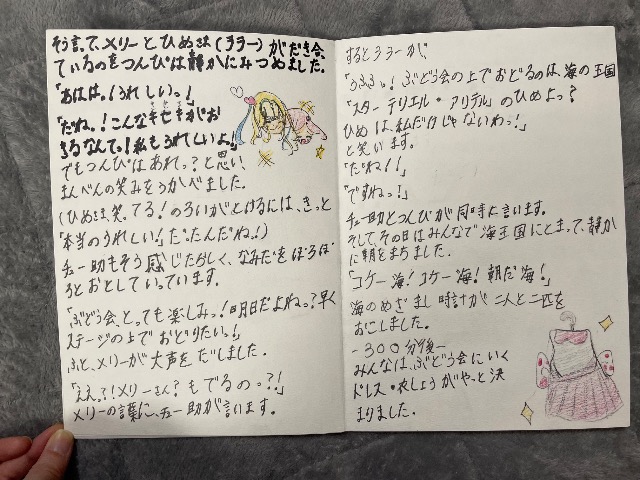 そう言って、メリーとひめさま(ララー)がだき合っ
ているのをつんぴは静かにみつめました。
「あはは。!うれしいっ!」
「だね。!こんなキセキがお
きるなんて。!私もうれしいよ。」
でもつんぴはあれっ?と思い、
まんべんの笑みをうかべました。
(ひめさま、笑ってる!のろいがとけるには、きっと
「本当のうれしい!」だったんだね。!)
チュー助もそう感じたらしく、なみだをぽろぽ
ろとおとしていっています。
「ぶどう会、とっても楽しみっ!明日だよね。?早く
ステージの上でおどりたいっ!」
ふと、メリーが大声をだしました。
「ええっ?!メリーさん?もでるのっ?!」
メリーの言葉に、チュー助が言います。
するとララーが、
「うふふっ!ぶどう会の上でおどるのは、海の王国
「スターテリエル・アリテル」のひめよっ?
ひめは、私だけじゃないわっ!」
と笑います。
「だね!!」
「ですねっ!」
チュー助とつんぴが同時に言います。
そして、その日はみんなで海王国にとまって、静か
に朝をまちました。
「コケー海!コケー海!朝だ海!」
海のめざまし時計が二人と二匹を
おこしました。
-300分後-
みんなは、ぶどう会にいく
ドレス・衣しょうがやっと決
まりました。